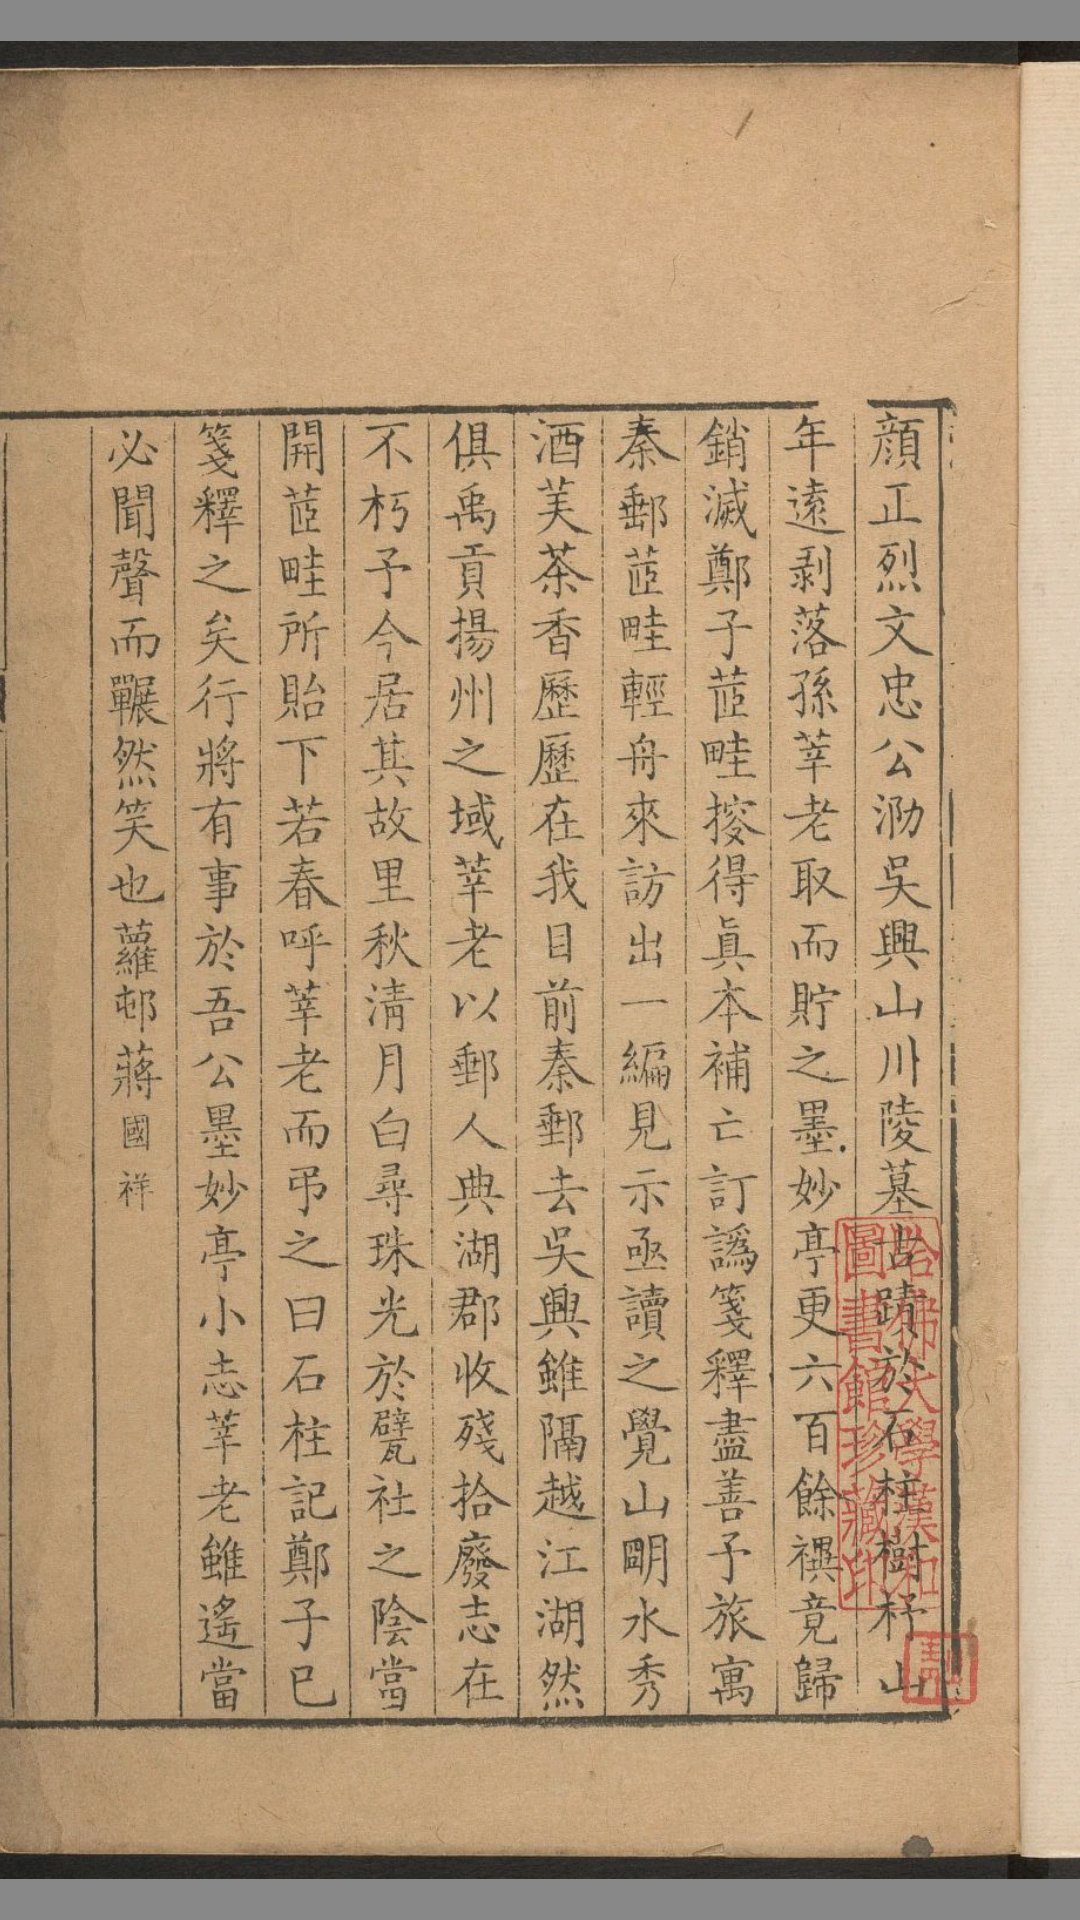 顔正烈文忠公泐吳興山川陵墓古蹟於石柱樹杼山
年遠剥落孫莘老取而貯之墨妙亭更六百餘禩竟歸
銷滅鄭子芷畦搜得眞本補亡訂譌箋釋盡善予旅寓
秦郵芷畦輕舟來訪出一編見示亟讀之覺山眀水秀
酒美茶香歷歷在我目前秦郵去吳興雖隔越江湖然
俱禹貢揚州之域莘老以郵人典湖郡收殘拾廢志在
不朽予今居其故里秋淸月白尋珠光於甓社之陰當
開芷畦所貽下若春呼莘老而弔之曰石柱記鄭子已
箋釋之矣行將有事於吾公墨妙亭小志莘老雖遙當
必聞聲而囅然笑也蘿邨蔣國祥
哈佛大學漢和
圖書館珍藏印